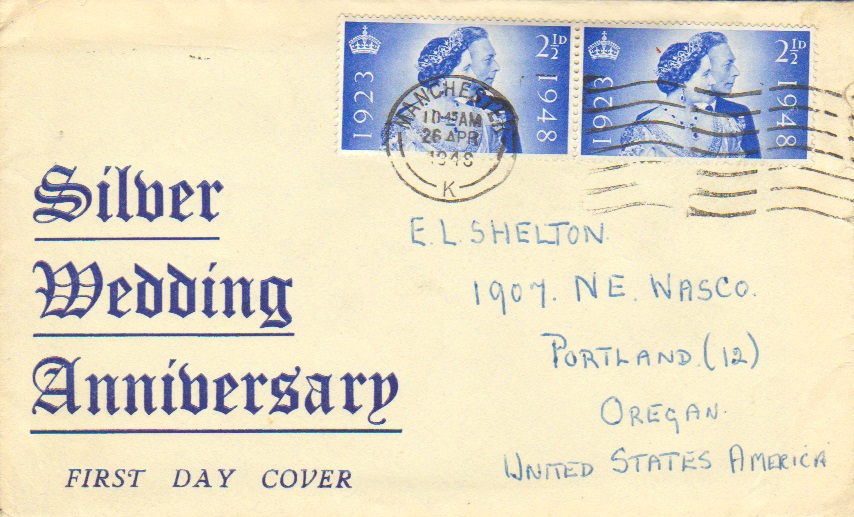 1923
2½D
1948
1923
2½D
1948
MANCHESTER
26 APR
1948
K
Silver
Wedding
Anniversary
FIRST DAY COVER
E. L. SHELTON
1907. N E. WASCO.
PORTLAND. (12)
OREGAN.
UNITED STATES AMERICA